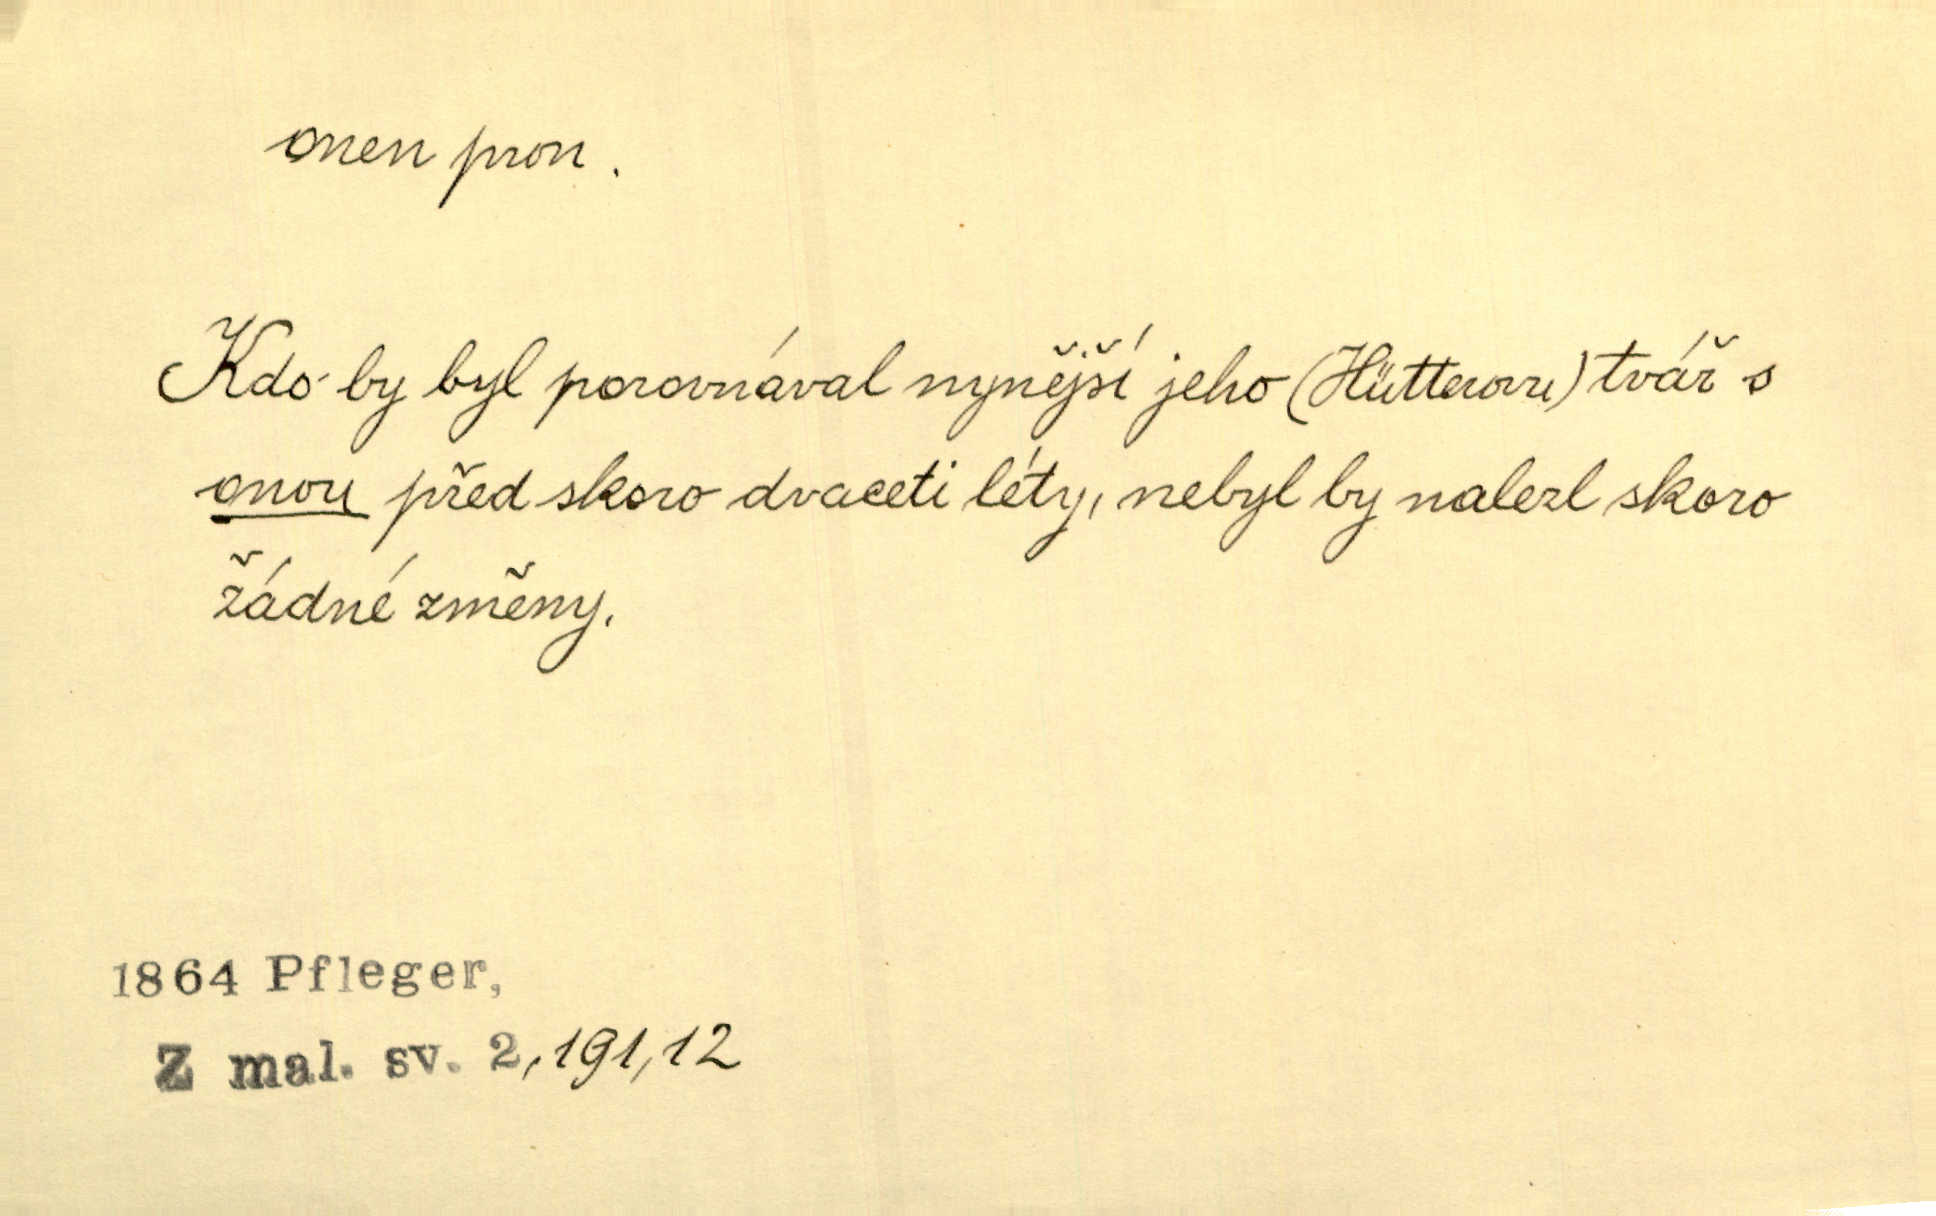 onen pron.
Kdo by byl porovnával nynější jeho (Hütterovu) tvář s
onou před skoro dvaceti léty, nebyl by nalezl skoro
žádné změny.
1864 Pfleger,
Z mal. sv. 2,191,12